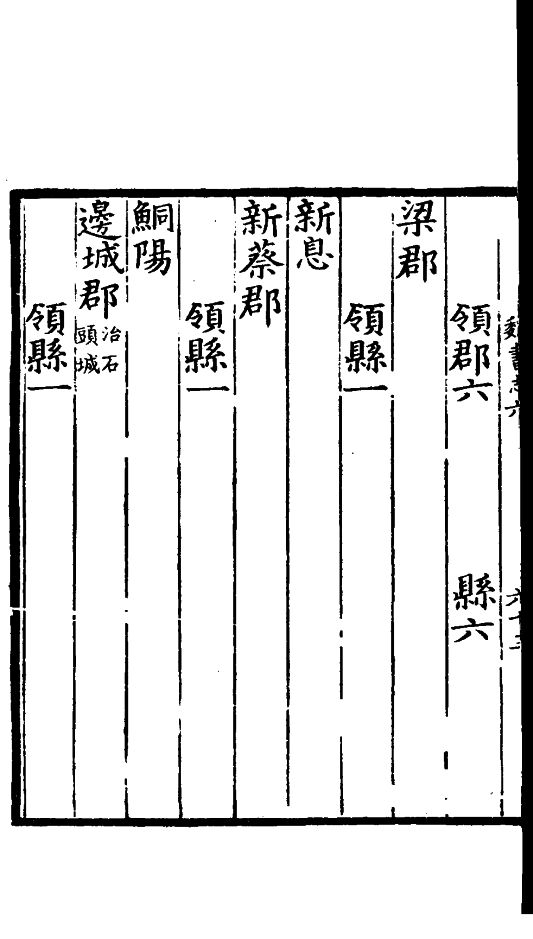 魏書志六 六十三
領郡六 縣六
梁郡
領縣一
新息
新蔡郡
領縣一
鮦陽
邊城郡治石頭城
領縣一